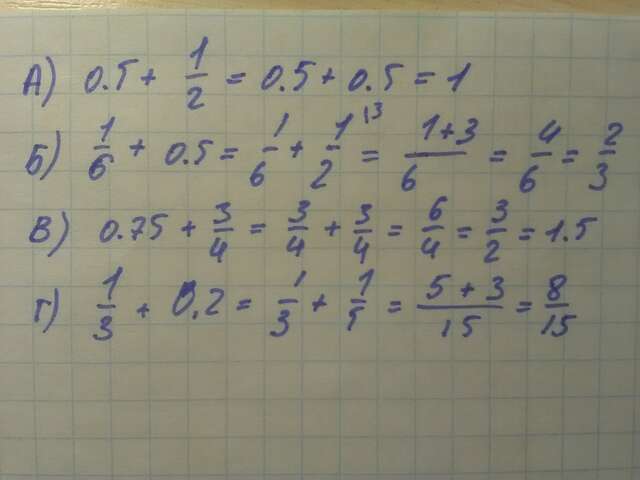 А) 0.5 + 1/2 = 0.5 + 0.5 = 1
Б) 1/6 + 0.5 = 1/6 + 1/2 |3 = 1+3/6 = 4/6 = 2/3
В) 0.75 + 3/4 = 3/4 + 3/4 = 6/4 = 3/2 = 1.5
Г) 1/3 + 0.2 = 1/3 + 1/5 = 5+3/15 = 8/15